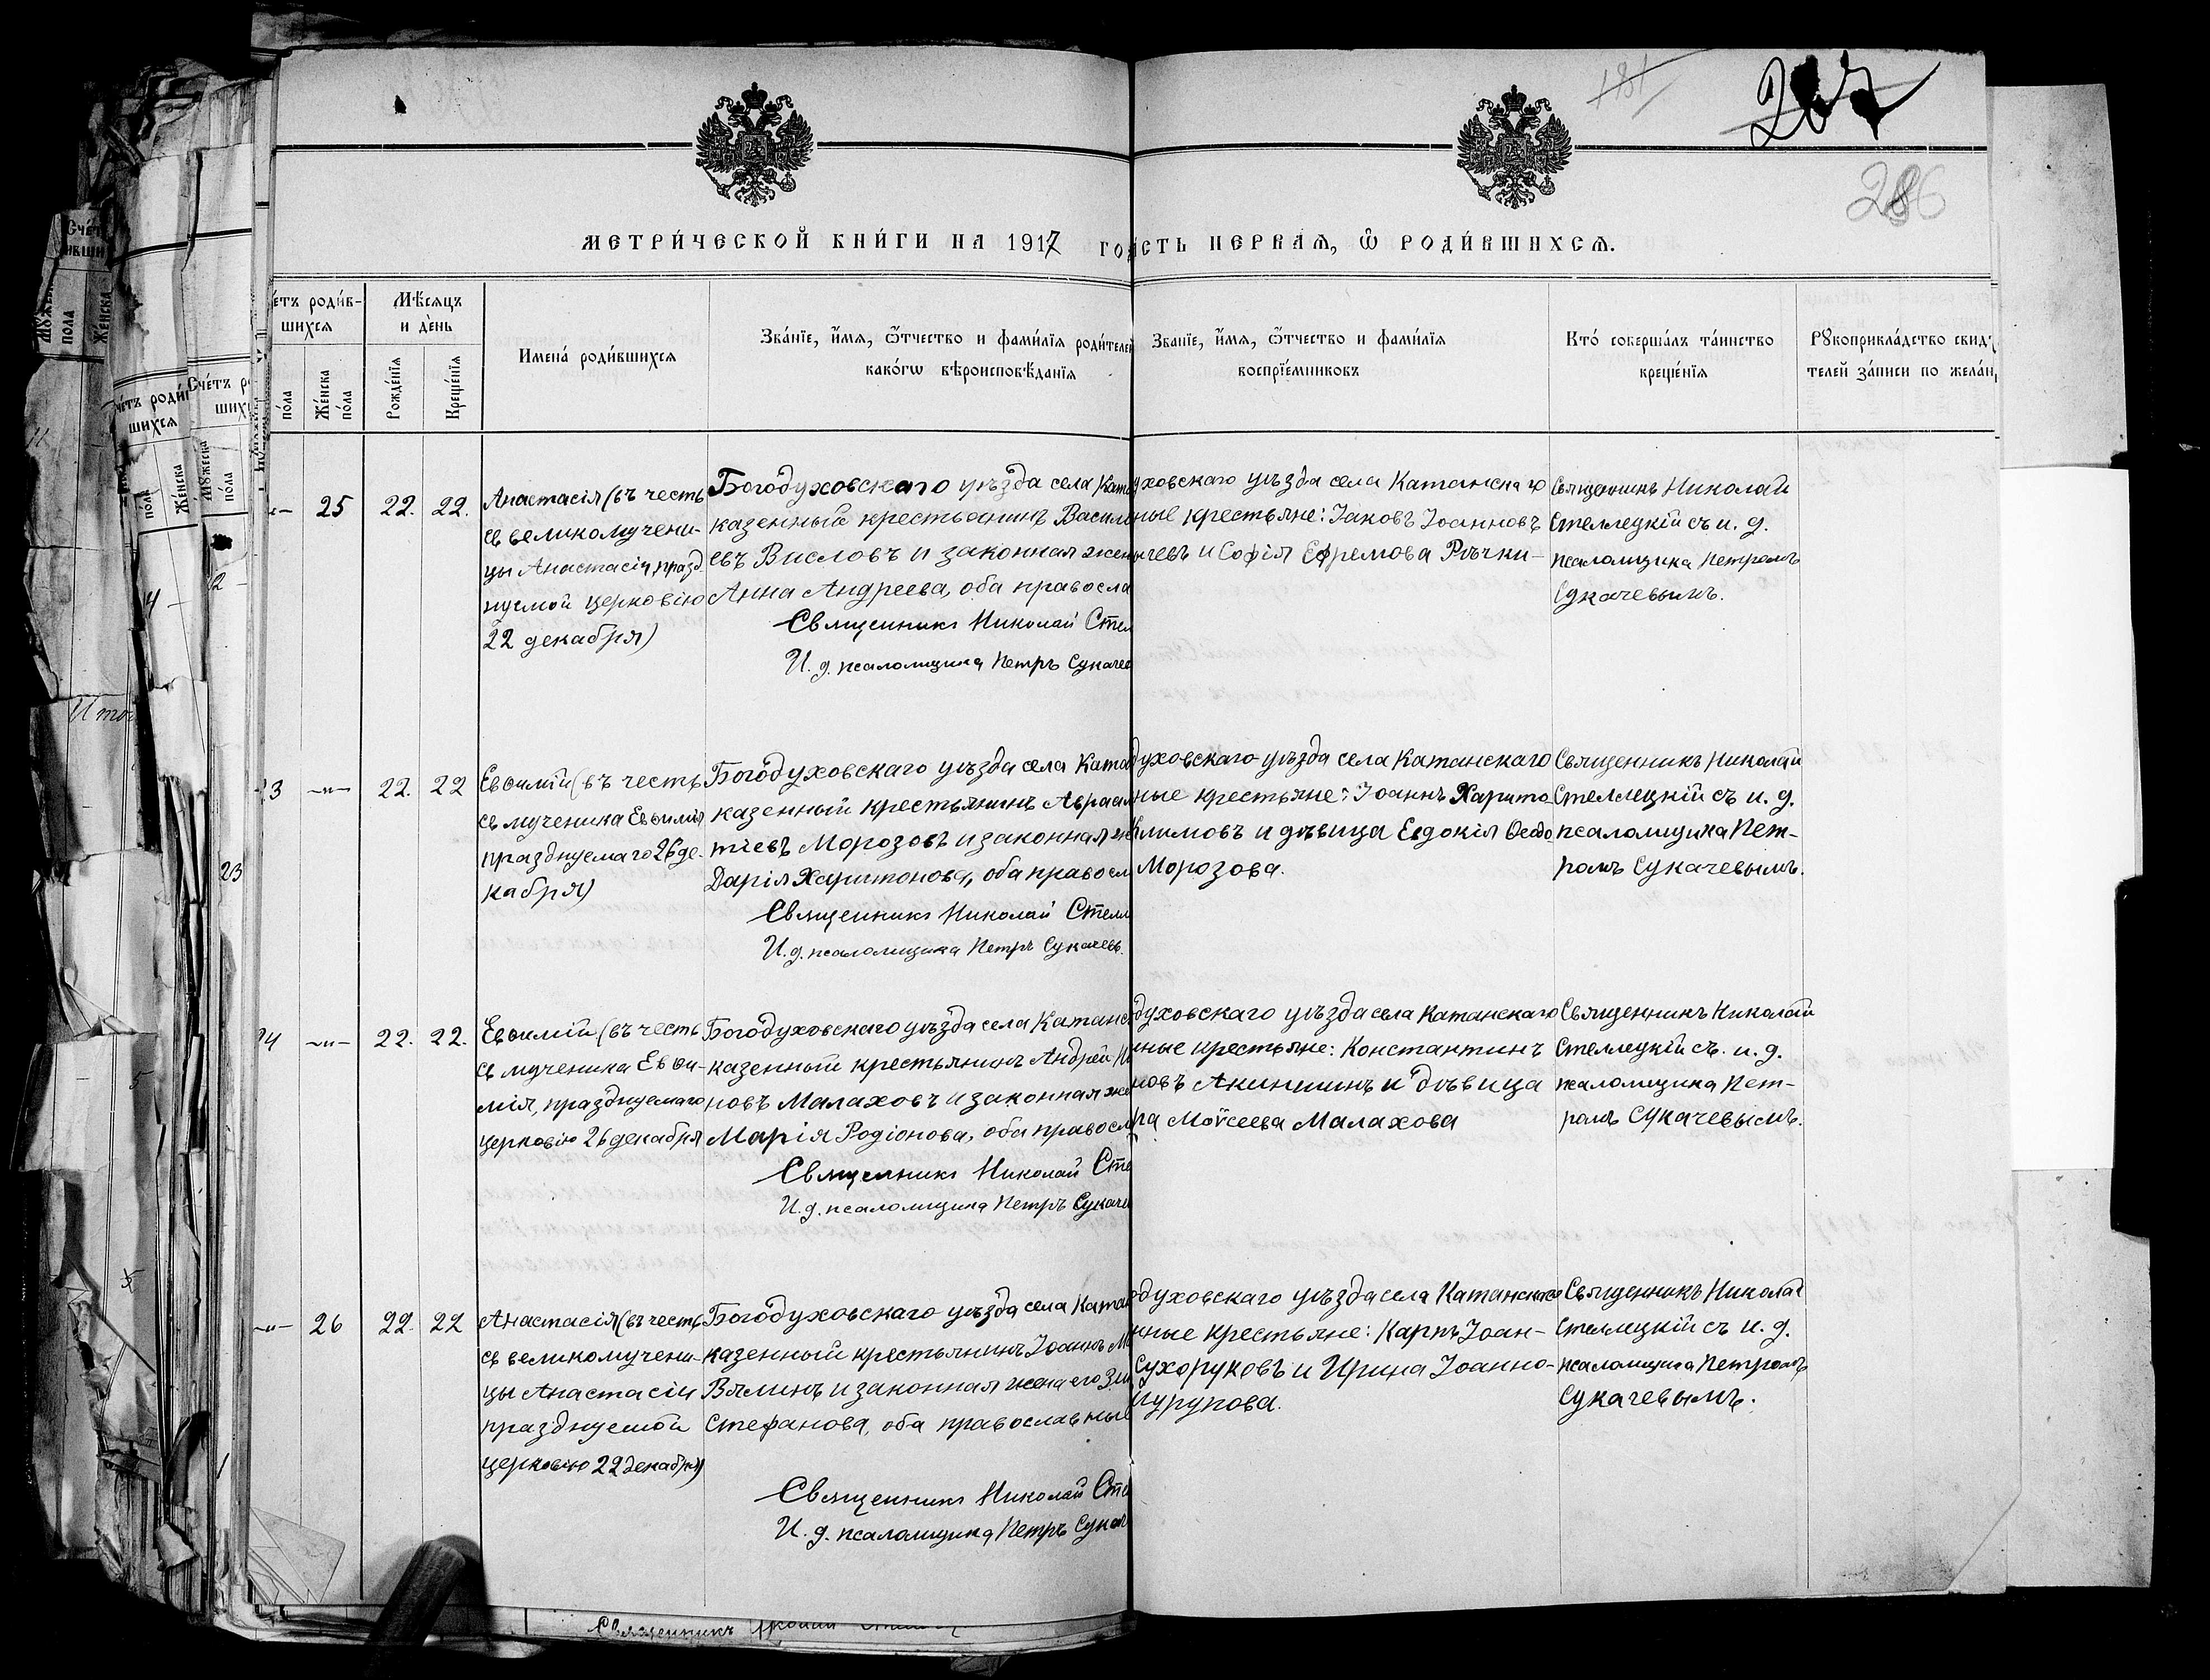 181
286
МЕТРИ́ЧЕСКОЙ КНИ́ГИ НА 1917 ГО
СТЬ ПЕРВАѦ, Ѡ҆ РОДИ́ВШИХСѦ.
е́тъ роди́в-
шихсѧ
по́ла
Же́нска по́ла
Мѣ́сяцъ
и де́нь
Рожде́нїѧ
Креще́нїѧ
Имена́ роди́вшихсѧ
Зва́нїе, и҆́мѧ, ѻ҆́тчество и фами́лїѧ роди́телей
како́гѡ вѣроисповѣ́данїѧ
Зва́нїе, и҆́мѧ, ѻ҆́тчество и фами́лїѧ
воспрїе́мниковъ
Кто́ соверша́лъ та́инство
креще́нїѧ
Рꙋкоприкла́дство свид
телей за́писи по жела́н
25
22. 22.
Анастасія (въ честь
св великомучени-
цы Анастасіи, празд
нуемой церковію
22 декабря)
Богодуховскаго уѣзда села Ката
казенный крестьянинъ Васил
евъ Висловъ и законная жен
Анна Андреева, оба правосла
Священникъ Николай Стел
И. д. псаломщика Петръ Сукачев
уховскаго уѣзда села Катанска го
ные крестьяне: Іаковъ Іоанновъ
ычевъ и Софія Ефремова Рѣчки-
Священникъ Николай
Стеллецкій съ и. д.
псаломщика Петромъ
Сукачевымъ.
23 -„- 22. 22
Евѳимій (въ честь
св мученика Евѳимія
празднуемаго 26 де-
кабря)
Богодуховскаго уѣзда села Ката
казенный крестьянинъ Авраам
тіевъ Морозовъ и законная же
Дарія Харитонова, оба правосл
Священникъ Николай Стелл
И. д. псаломщика Петръ Сукачевъ.
духовскаго уѣзда села Катанскаго
ные крестьяне: Іоаннъ Харито
Климовъ и дѣвица Евдокія Ѳеодо
Морозова.
Священникъ Николай
Стеллецкій съ и. д.
псаломщика Пет-
ромъ Сукачевымъ.
24 -„- 22. 22.
Евѳимій (въ честь
св мученика Евѳи-
мія, празднуемаго
церковію 26 декабря
Богодуховскаго уѣзда села Катанс
казенный крестьянинъ Андрей
новъ Малаховъ и законная же
Марія Родіонова, оба правосл
Священникъ Николай Сте
И. д. псаломщика Петръ Сукаче
духовскаго уѣзда села Катанскаго
нные крестьяне: Константинъ
новъ Акиншинъ и дѣвица
ра Моѵсеева Малахова
Священникъ Николай
Стеллецкій съ. и. д.
псаломщика Пет-
ромъ Сукачевымъ.
-„- 26 22. 22
Анастасія (въ честь
св великомучени-
цы Анастасіи
празднуемой
церковію 22 декабря)
Богодуховскаго уѣзда села Катан
казенный крестьянинъ Іоаннъ М
Вялинъ и законная жена его
Стефанова, оба православные
Священникъ Николай Сте
И. д. псаломщика Петръ Сукач
одуховскаго уѣзда села Катанскаго
нные крестьяне: Карпъ Іоан-
Сухоруковъ и Ирина Іоанно-
Священникъ Николай
Стеллецкій съ и. д.
псаломщика Петромъ
Сукачевымъ.